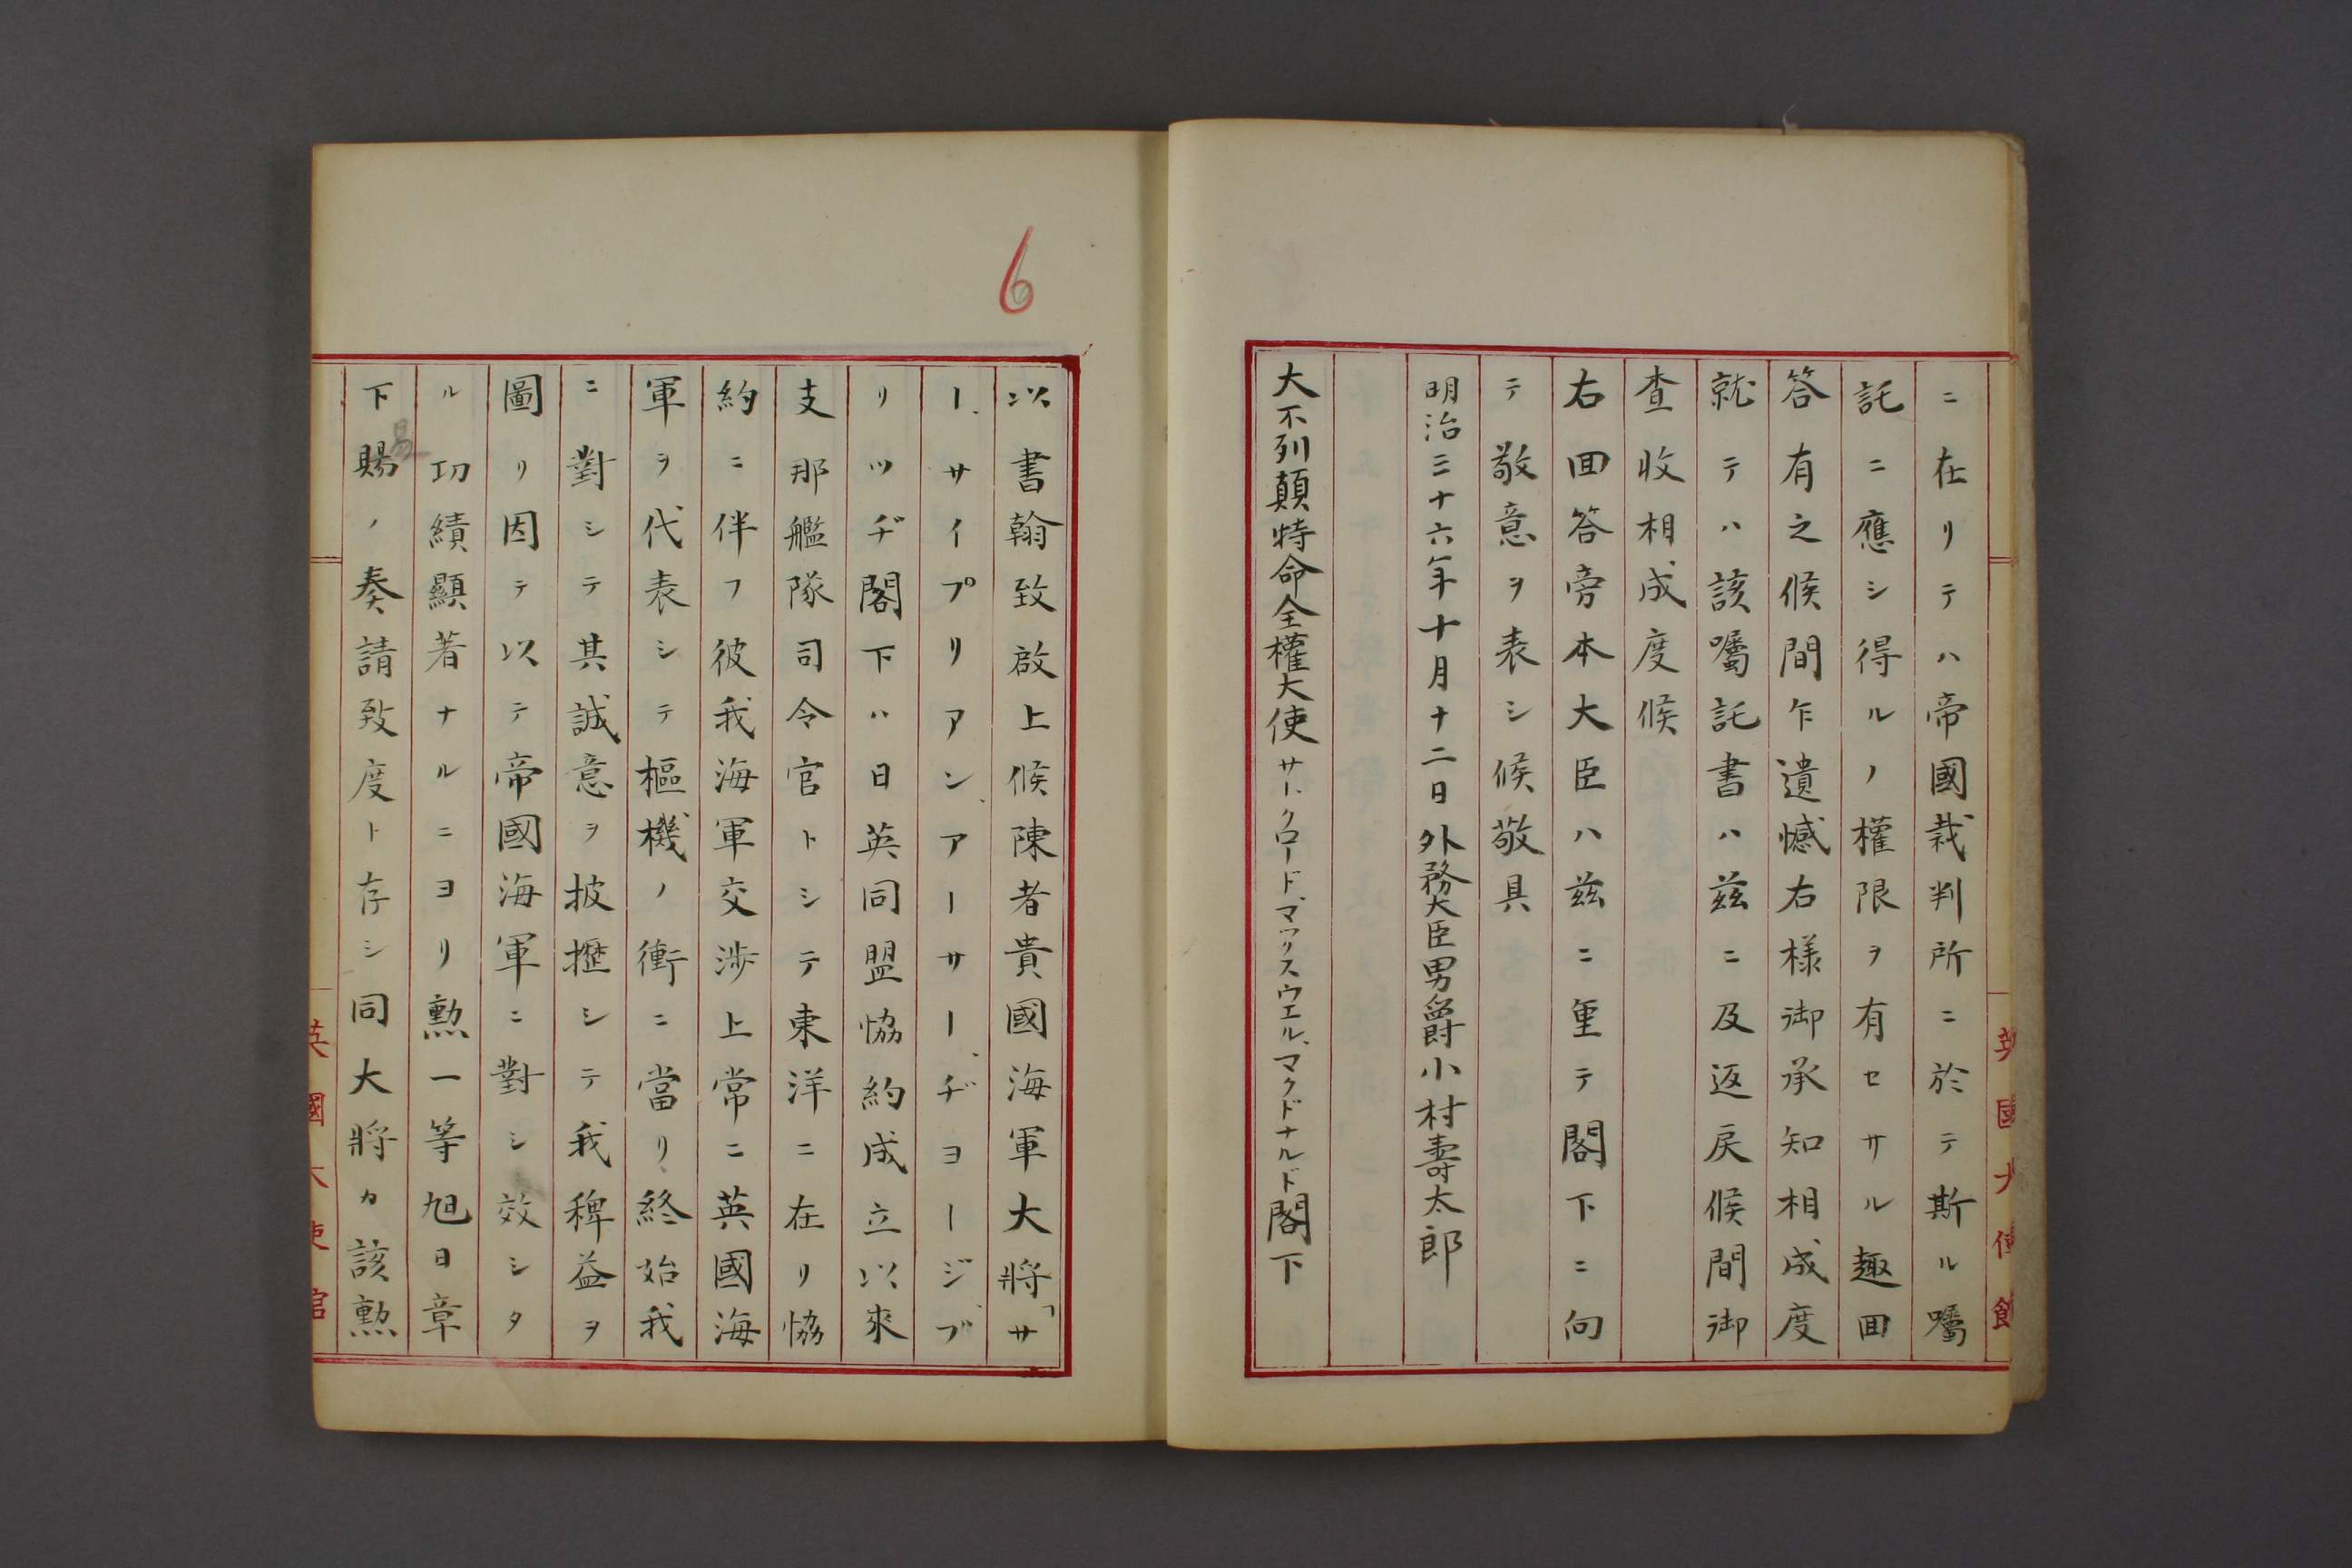 ニ在リテハ帝國裁判所ニ於テ斯ル囑
託ニ應シ得ルノ權限ヲ有セサル趣囬
答有之候間乍遺憾右様御承知相成度
就テハ該囑託書ハ茲ニ及返戻候間御
査收相成度候
右囬答旁本大臣ハ茲ニ重テ閣下ニ向
テ敬意ヲ表シ候敬具
明治三十六年十月十二日外務大臣男爵小村壽太郎
大不列顛特命全權大使サー、クロード、マックスウエル、マクドナルド閣下
英國大使館
6
以書翰致啟上候陳者貴國海軍大將「サ
ー、サイプリアン、アーサー、ヂヨージ、ブ
リツヂ閣下ハ日英同盟協約成立以來
支那艦隊司令官トシテ東洋ニ在リ協
約ニ伴フ彼我海軍交渉上常ニ英國海
軍ヲ代表シテ樞機ノ衝ニ當リ終始我
ニ對シテ其誠意ヲ披攊シテ我稗益ヲ
圖リ因テ以テ帝國海軍ニ對シ效シタ
ル功績顯著ナルニヨリ勲一等旭日章
下賜ノ奏請致度ト存シ同大將カ該勲
英國大使館